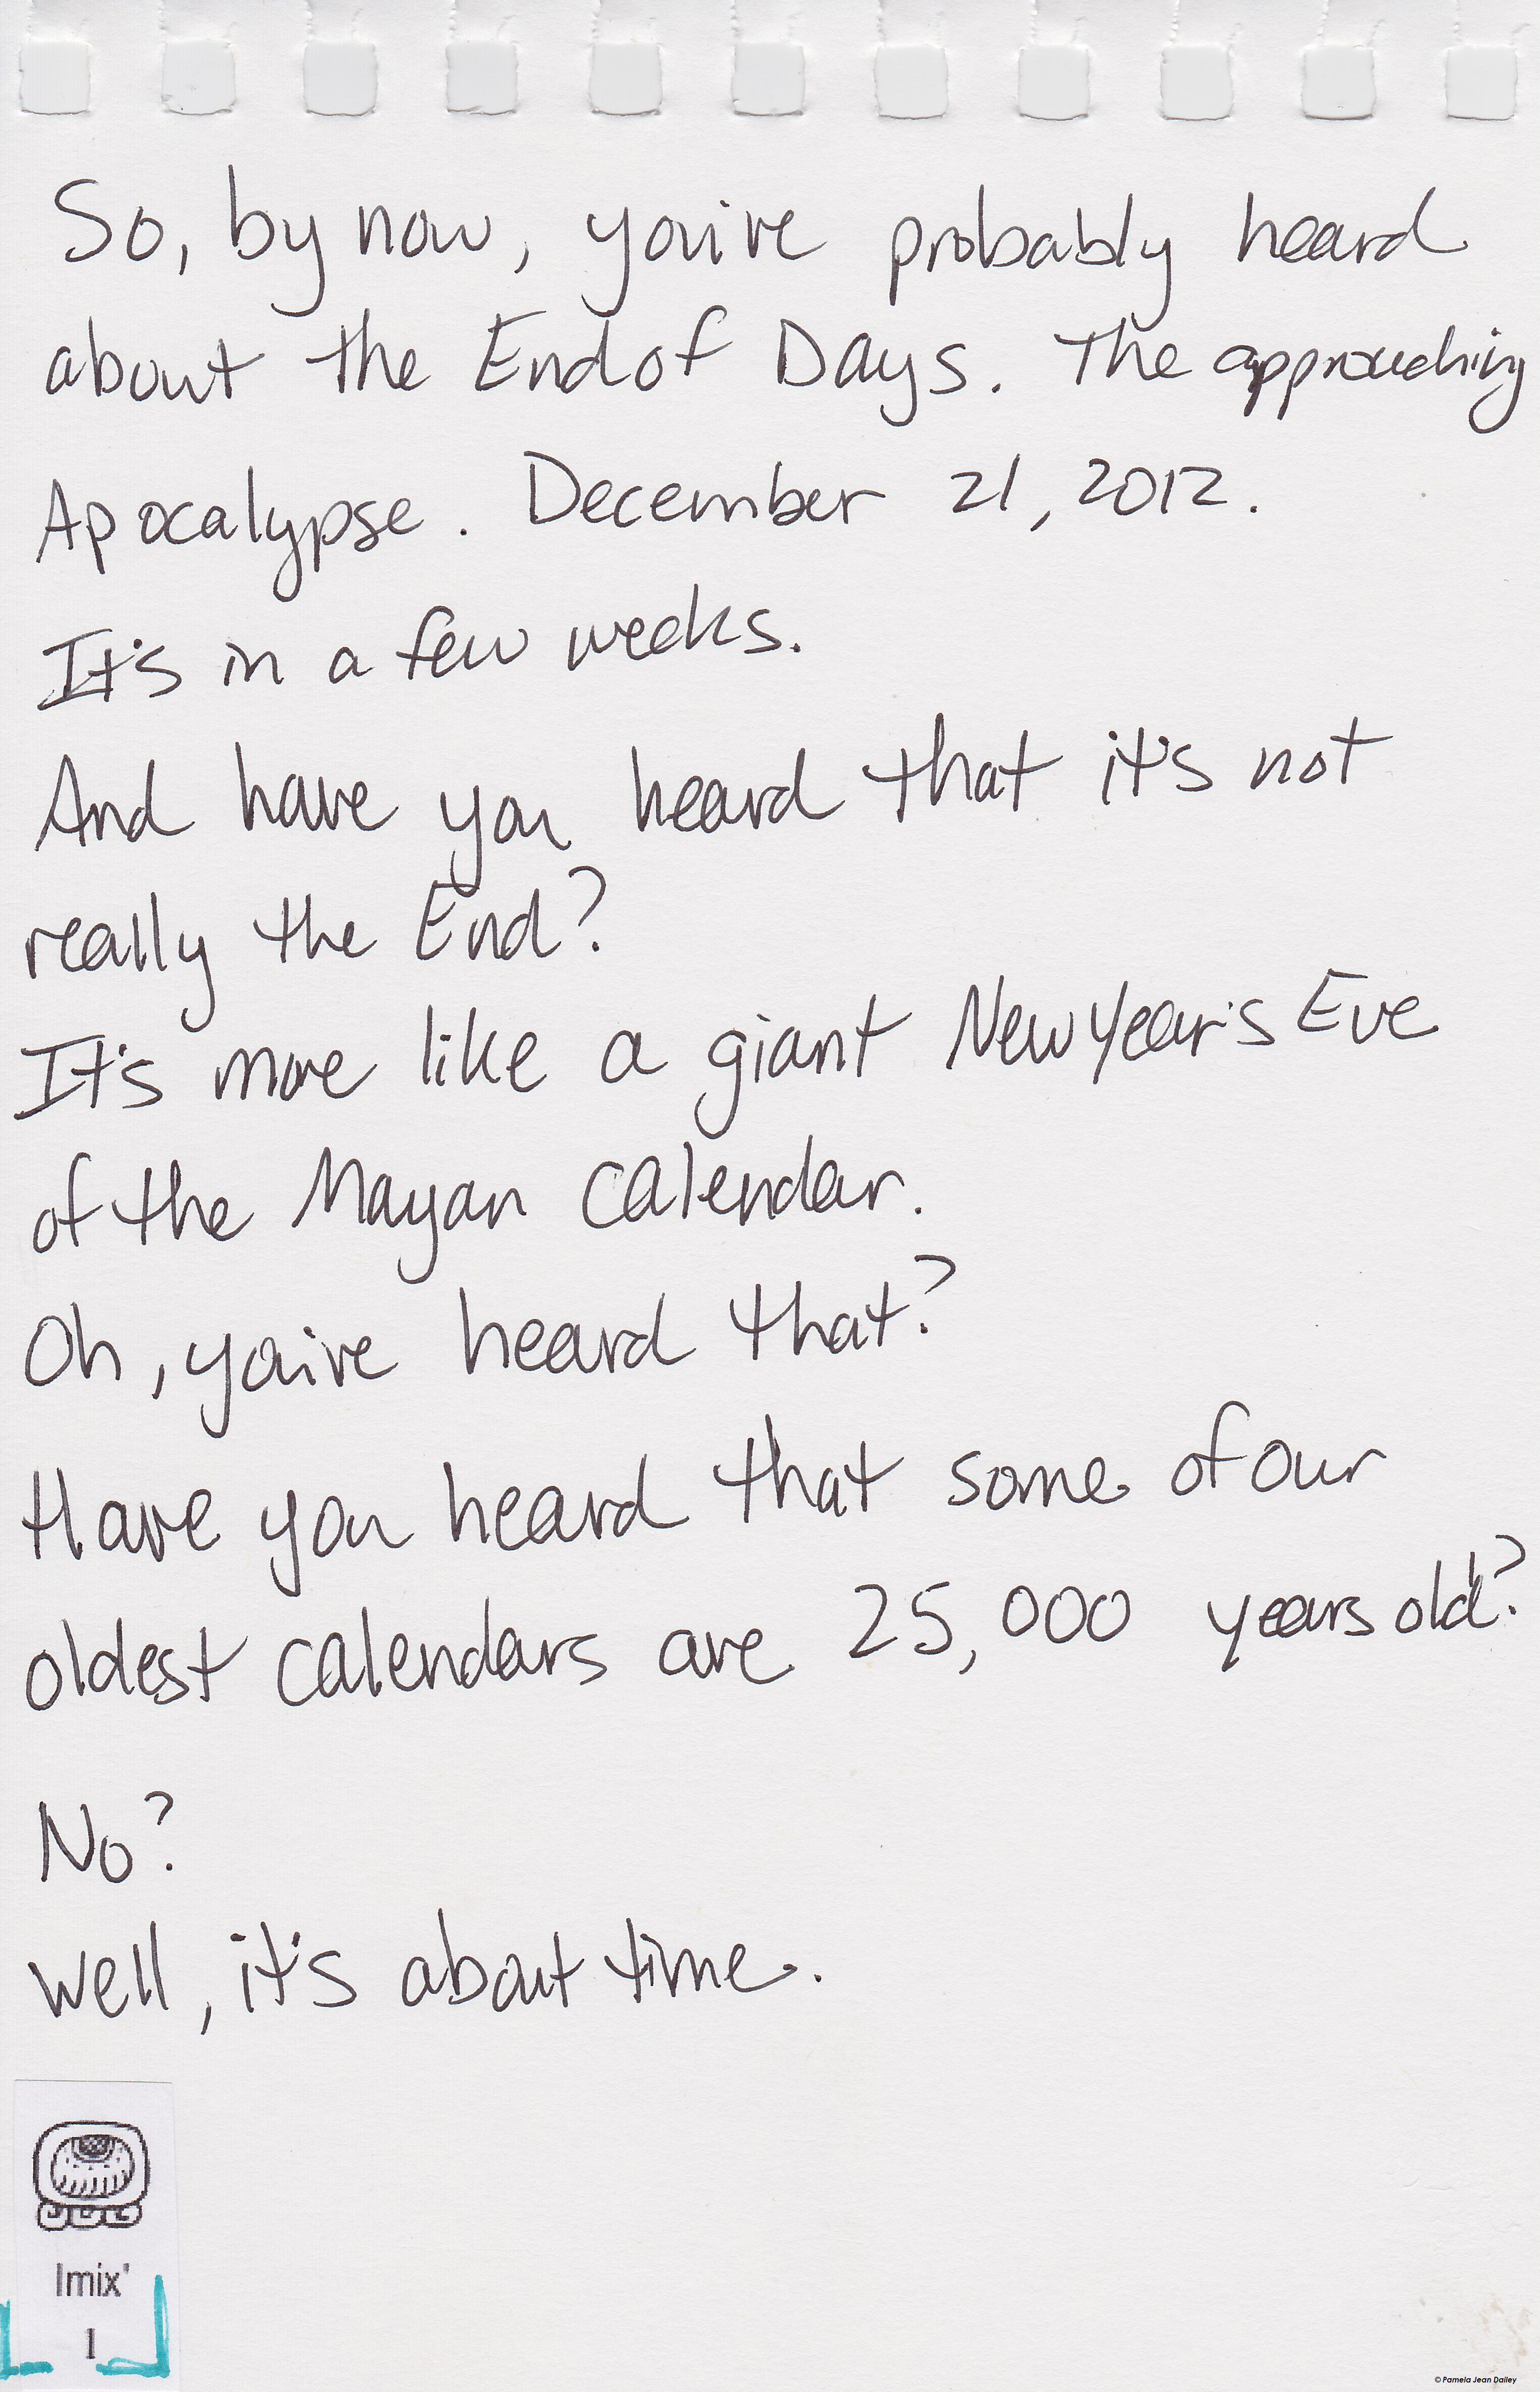 So, by now, you've probably heard
about the End of Days. The approaching
Apocalypse. December 21, 2012.
It's in a few weeks.
And have you heard that it's not
really the End?
It's more like a giant New Year's Eve
of the Mayan Calendar.
Oh, you've heard that?
Have you heard that some of our
oldest calendars are 25,000 years old?
No?
Well, it's about time.
Imix'
1
© Pamela Jean Dailey